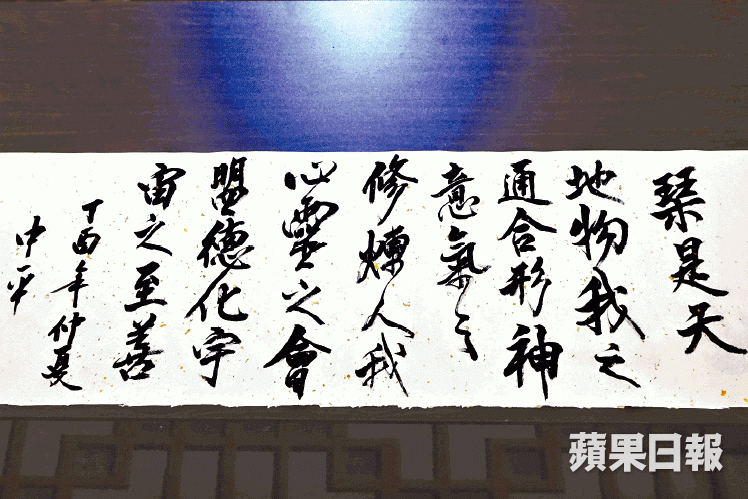 琹是天
地物我之
通合形神
意氣之
修煉人我
心靈之會
盟德化宇
宙之至善
丁酉年仲夏
中平
蘋果日報